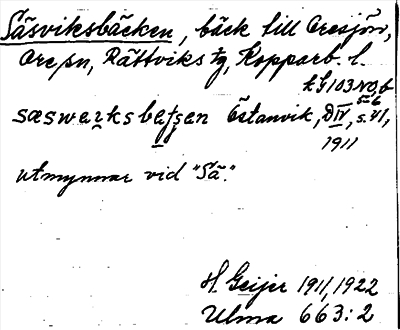 Säsviksbäcken, bäck till Oresjön,
Ore sn, Rättviks tg, Kopparb. l.
k G 103 NO, b
5-6
sæswaɪksbeʈʂen Östanvik, D IV, s. 41,
1911
utmynnar vid "Sä".
H. Geijer 1911, 1922
Ulma 663:2